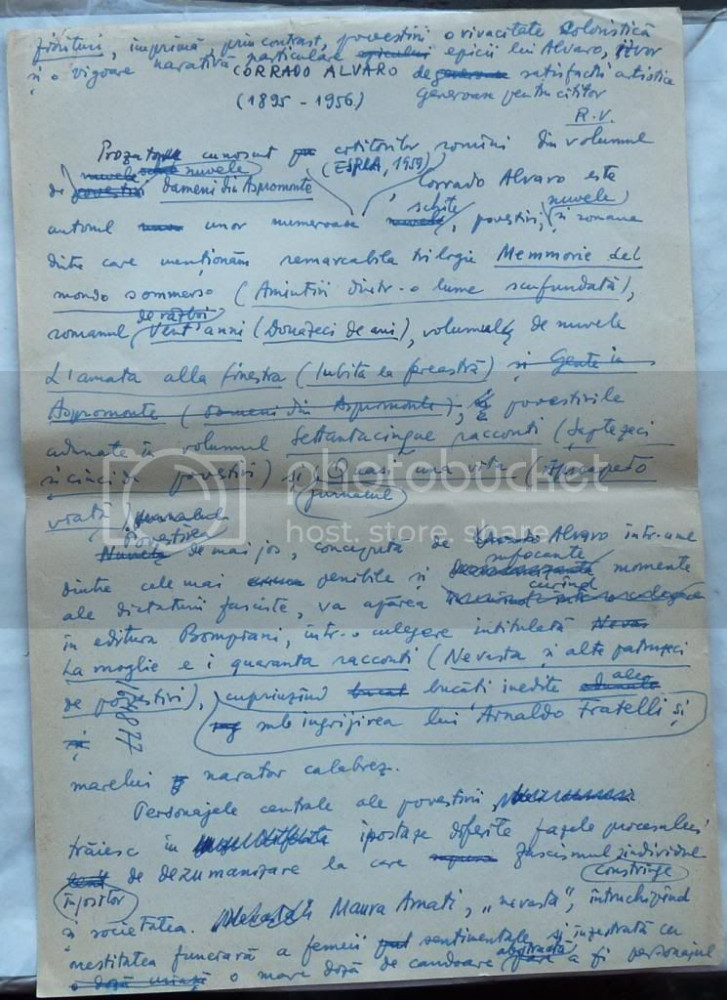 fiorituri, imprimă, prin contrast, povestirii o vivacitate coloristică
și o vigoare narativă particulare epicii lui Alvaro, izvor
CORRADO ALVARO de satisfacții artistice
(1895 - 1956) generoase pentru cititor
R.V.
Prozator cunoscut cititorilor români din volumul
de nuvele Oameni din Aspromonte (ESPLA, 1959) Corrado Alvaro este
autorul unor numeroase schițe, povestiri, nuvele și romane
dintre care menționăm remarcabila trilogie Memmorie del
mondo sommerso (Amintiri dintr-o lume scufundată),
romanul de război Vent'anni (Douăzeci de ani), volumul de nuvele
L'amata alla finestra (Iubita la fereastră) și Gente in
Aspromonte (Oameni din Aspromonte), povestirile
adunate în volumul Settantacinque racconti (Șaptezeci
și cinci de povestiri) și jurnalul Quasi una vita (Aproape o
viață)
Povestirea de mai jos, concepută de Alvaro într-unul
dintre cele mai penibile și sufocante momente
ale dictaturii fasciste, va apărea curînd
în editura Bompiani, într-o culegere intitulată
La moglie e i quaranta racconti (Nevasta și alte patruzeci
de povestiri), cuprinzînd bucăți inedite ale
sub îngrijirea lui Arnaldo Fratelli și
marelui narator calabrez.
Personajele centrale ale povestirii
trăiesc în ipostaze diferite fazele procesului
înjositor de dezumanizare la care fascismul constrînge individul
și societatea. Maura Amati, „nevasta", întruchipînd
onestitatea funciară a femeii sentimentale și înzestrată cu
o mare doză de candoare a fi personajul
photobucket
host. store. share